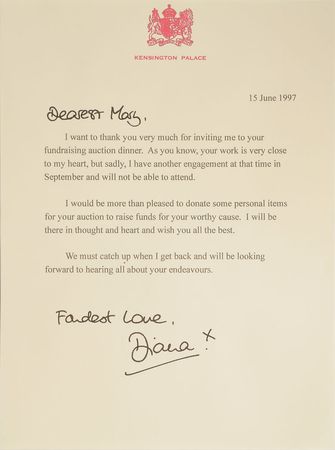 KENSINGTON PALACE
15 June 1997
Dearest Mary,
I want to thank you very much for inviting me to your
fundraising auction dinner. As you know, your work is very close
to my heart, but sadly, I have another engagement at that time in
September and will not be able to attend.
I would be more than pleased to donate some personal items
for your auction to raise funds for your worthy cause. I will be
there in thought and heart and wish you all the best.
We must catch up when I get back and will be looking
forward to hearing all about your endeavours.
Fondest Love,
Diana x